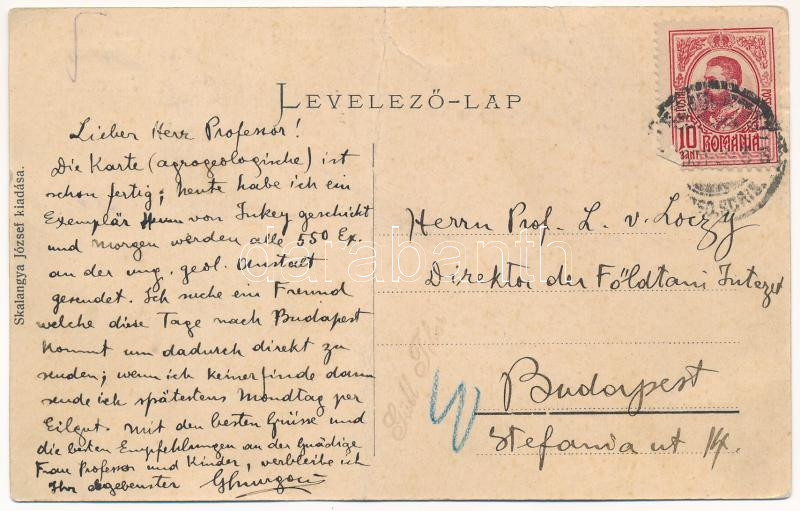 LEVELEZŐ-LAP
Lieber Herr Professor!
Die Karte (agrogeologische) ist
schon fertig; heute habe ich ein
Exemplär von Inkey geschickt
und morgen werden alle 550 Ex.
an der ung. geol. Anstalt
gesendet. Ich suche ein Freund
welche diese Tage nach Budapest
kommt um dadurch direkt zu
senden; wenn ich keiner finde dann
sende ich spätestens Mondtag per
Eilgut. Mit den besten Grüsse und
die besten Empfehlungen an der Gnädige
Frau Professor und Kinder, verbleibe ich
Ihr ergebenster
Skalangya József kiadása.
10
BANI
ROMANIA
Herrn Prof. L. v. Loczy
Direktor der Földtani Intézet
Budapest
Stefania ut 14.
darabanth